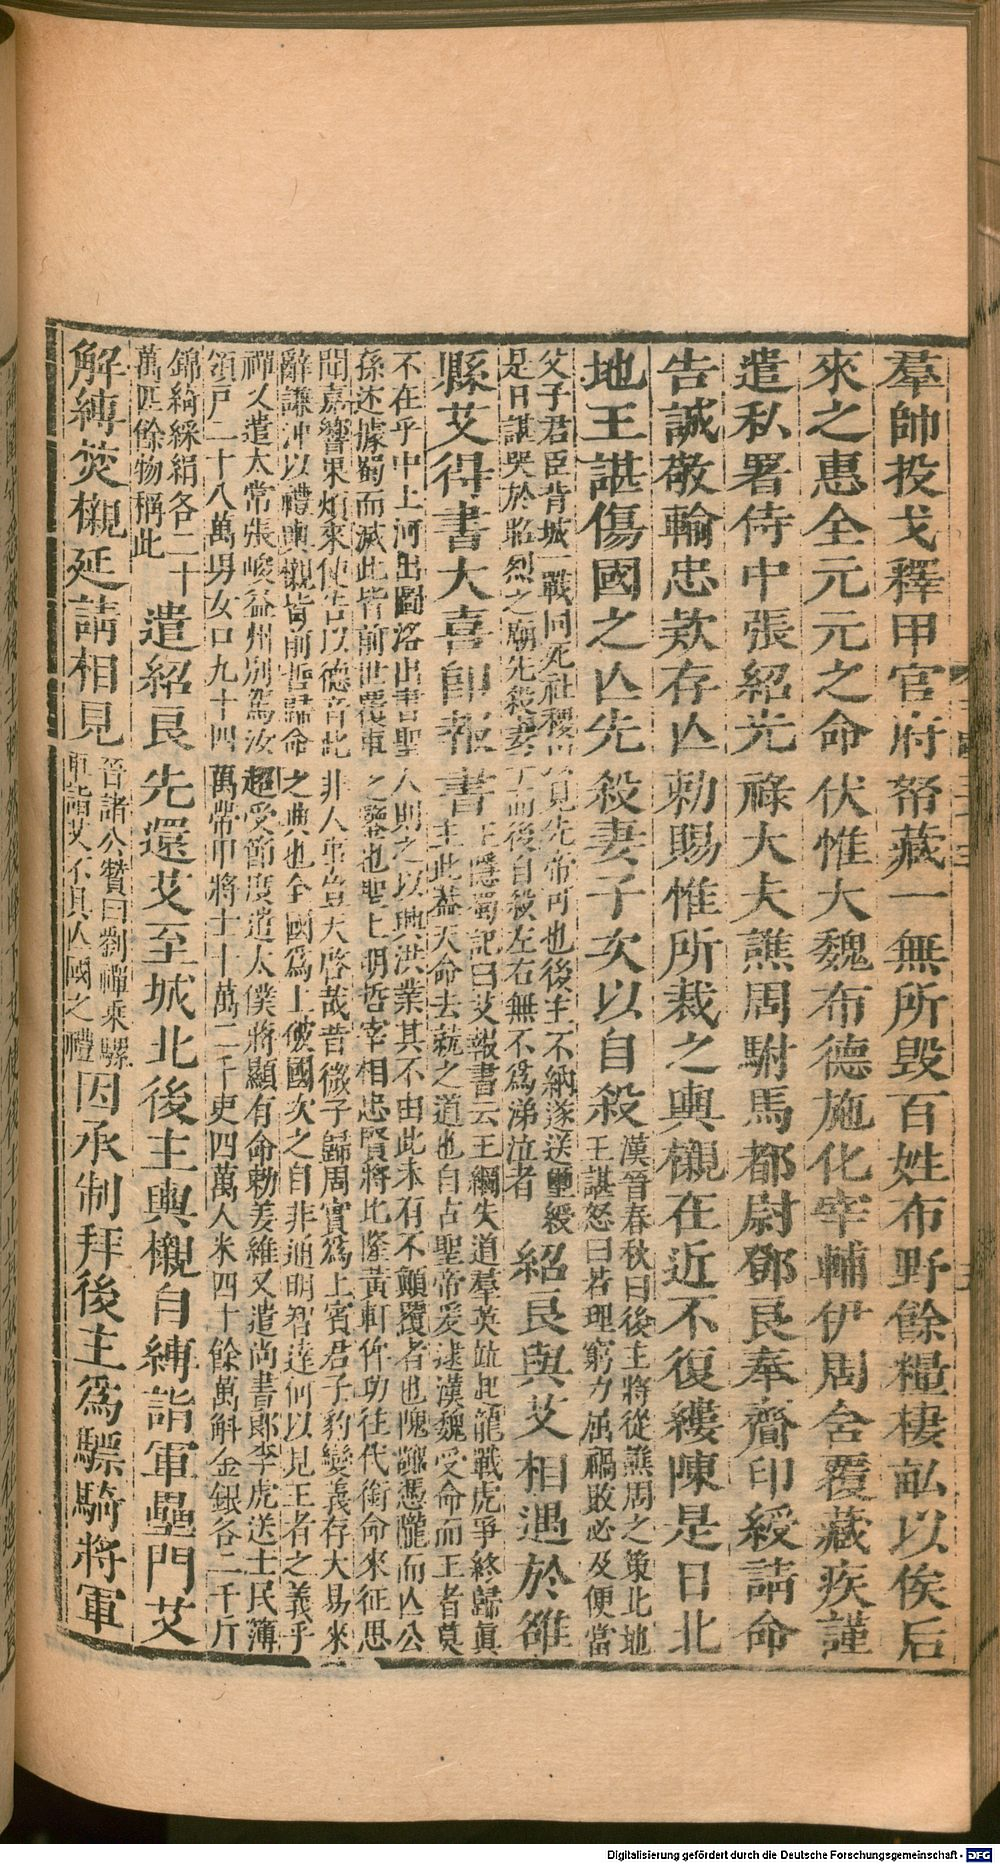 羣帥投戈釋甲官府帑藏一無所毀百姓布野餘糧棲畝以俟后
來之惠全元元之命伏惟大魏布德施化宰輔伊周含覆藏疾謹
遣私署侍中張紹光祿大夫譙周駙馬都尉鄧艮奉齎印綬請命
告誠敬輸忠款存亾勅賜惟所裁之輿櫬在近不復縷陳是日北
地王諶傷國之亾先殺妻子次以自殺
漢晉春秋曰後主將從譙周之策北地
王諶怒曰若理窮力屈禍敗必及便當
父子君臣背城一戰同死社稷以見先帝可也後主不納遂送璽綬
是日諶哭於昭烈之廟先殺妻子而後自殺左右無不爲涕泣者
紹艮與艾相遇於雒
縣艾得書大喜卽報書
王隱蜀記曰艾報書云王綱失道羣英竝起龍戰虎爭終歸眞
主此蓋天命去就之道也自古聖帝爰逮漢魏受命而王者莫
不在乎中上河出圖洛出書聖人則之以興洪業其不由此未有不顚覆者也隗囂憑隴而亾公
孫述據蜀而滅此皆前世覆車之鑒也聖上明哲宰相忠賢將比隆黃軒侔功往代銜命來征思
聞嘉響果煩來使告以德音此非人事豈天啓哉昔微子歸周實爲上賓君子豹變義存大易來
辭謙沖以禮輿櫬皆前哲歸命之典也全國爲上破國次之自非通明智達何以見王者之義乎
禪又遣太常張峻益州別駕汝超受節度遣太僕蔣顯有命勅姜維又遣尚書郎李虎送士民簿
領戶二十八萬男女口九十四萬帶甲將士十萬二千吏四萬人米四十餘萬斛金銀各二千斤
錦綺綵絹各二十
萬匹餘物稱此
遣紹艮先還艾至城北後主輿櫬自縛詣軍壘門艾
解縛焚櫬延請相見
晉諸公贊曰劉禪乘騾
車詣艾不具亾國之禮
因承制拜後主爲驃騎將軍
Digitalisierung gefördert durch die Deutsche Forschungsgemeinschaft - DFG